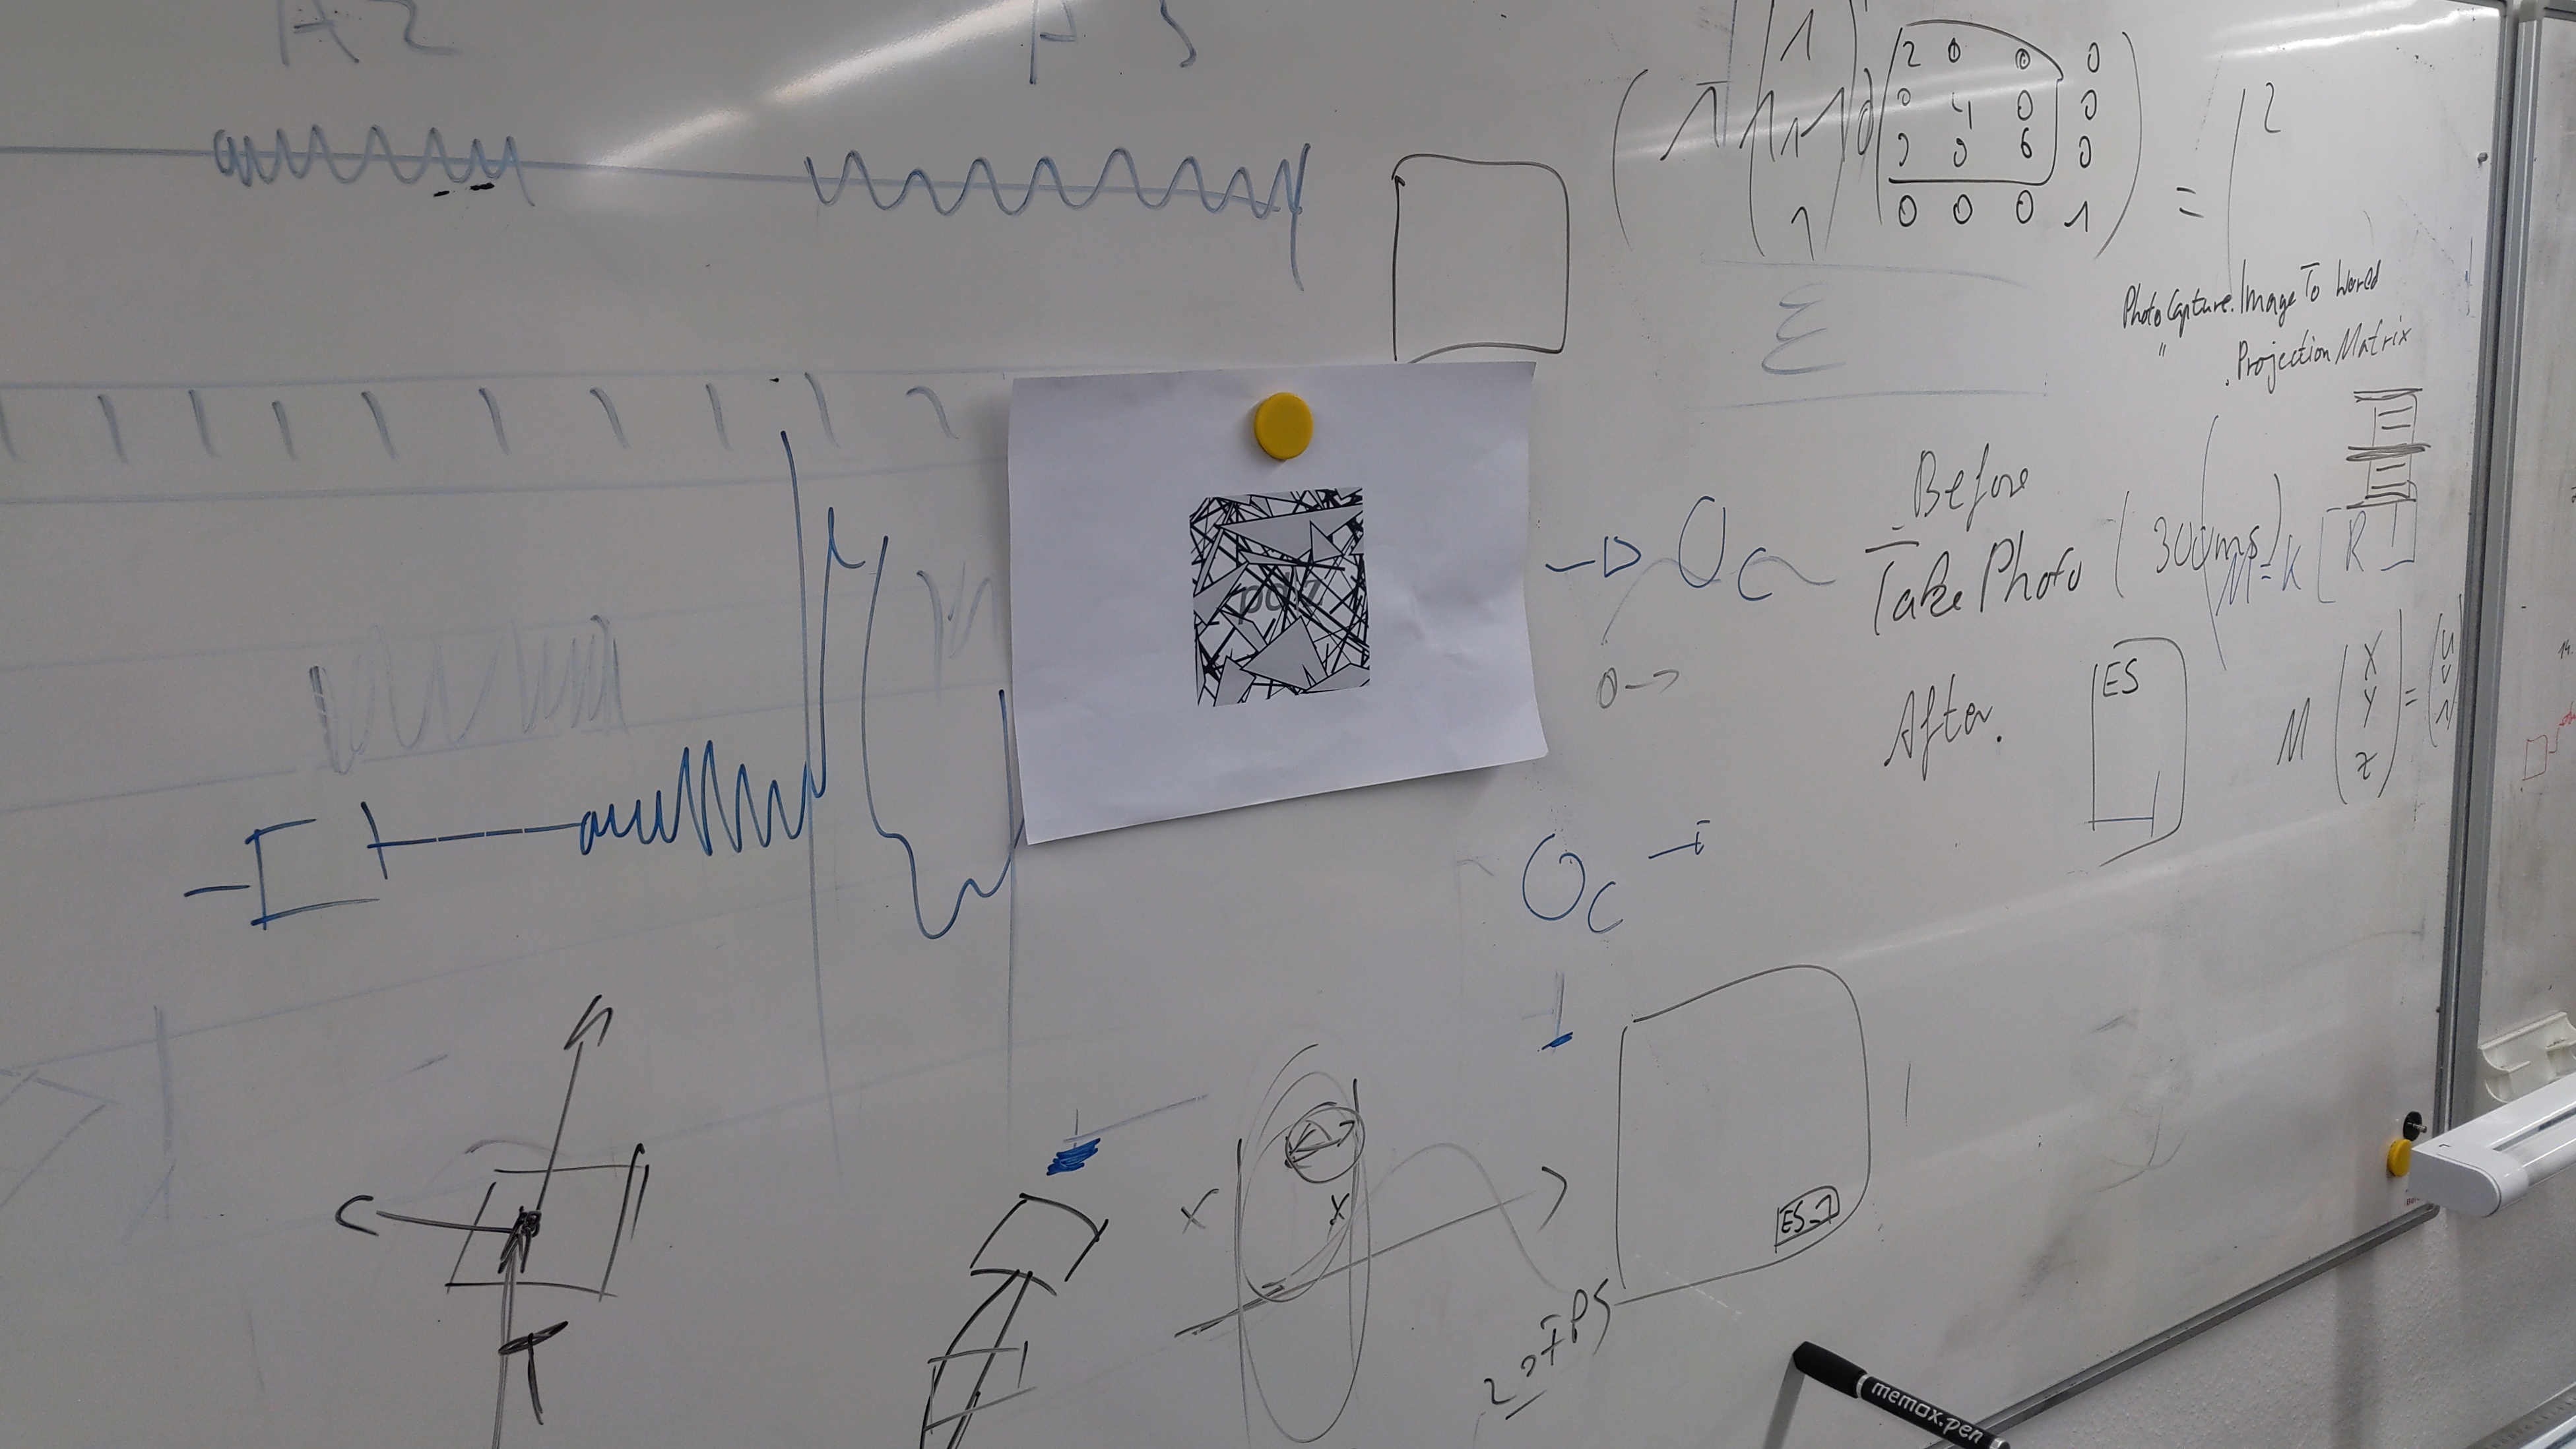 A2
A3
1
1
1
2 0 0 0
0 4 0 0
0 0 6 0
0 0 0 1
=
2
PhotoCapture.ImageToWorld
" .ProjectionMatrix
Before
TakePhoto (300ms)
M=K [R T]
After.
ES
M
X
Y
Z
=
u
v
1
ES_1
20FPS
memax.pen